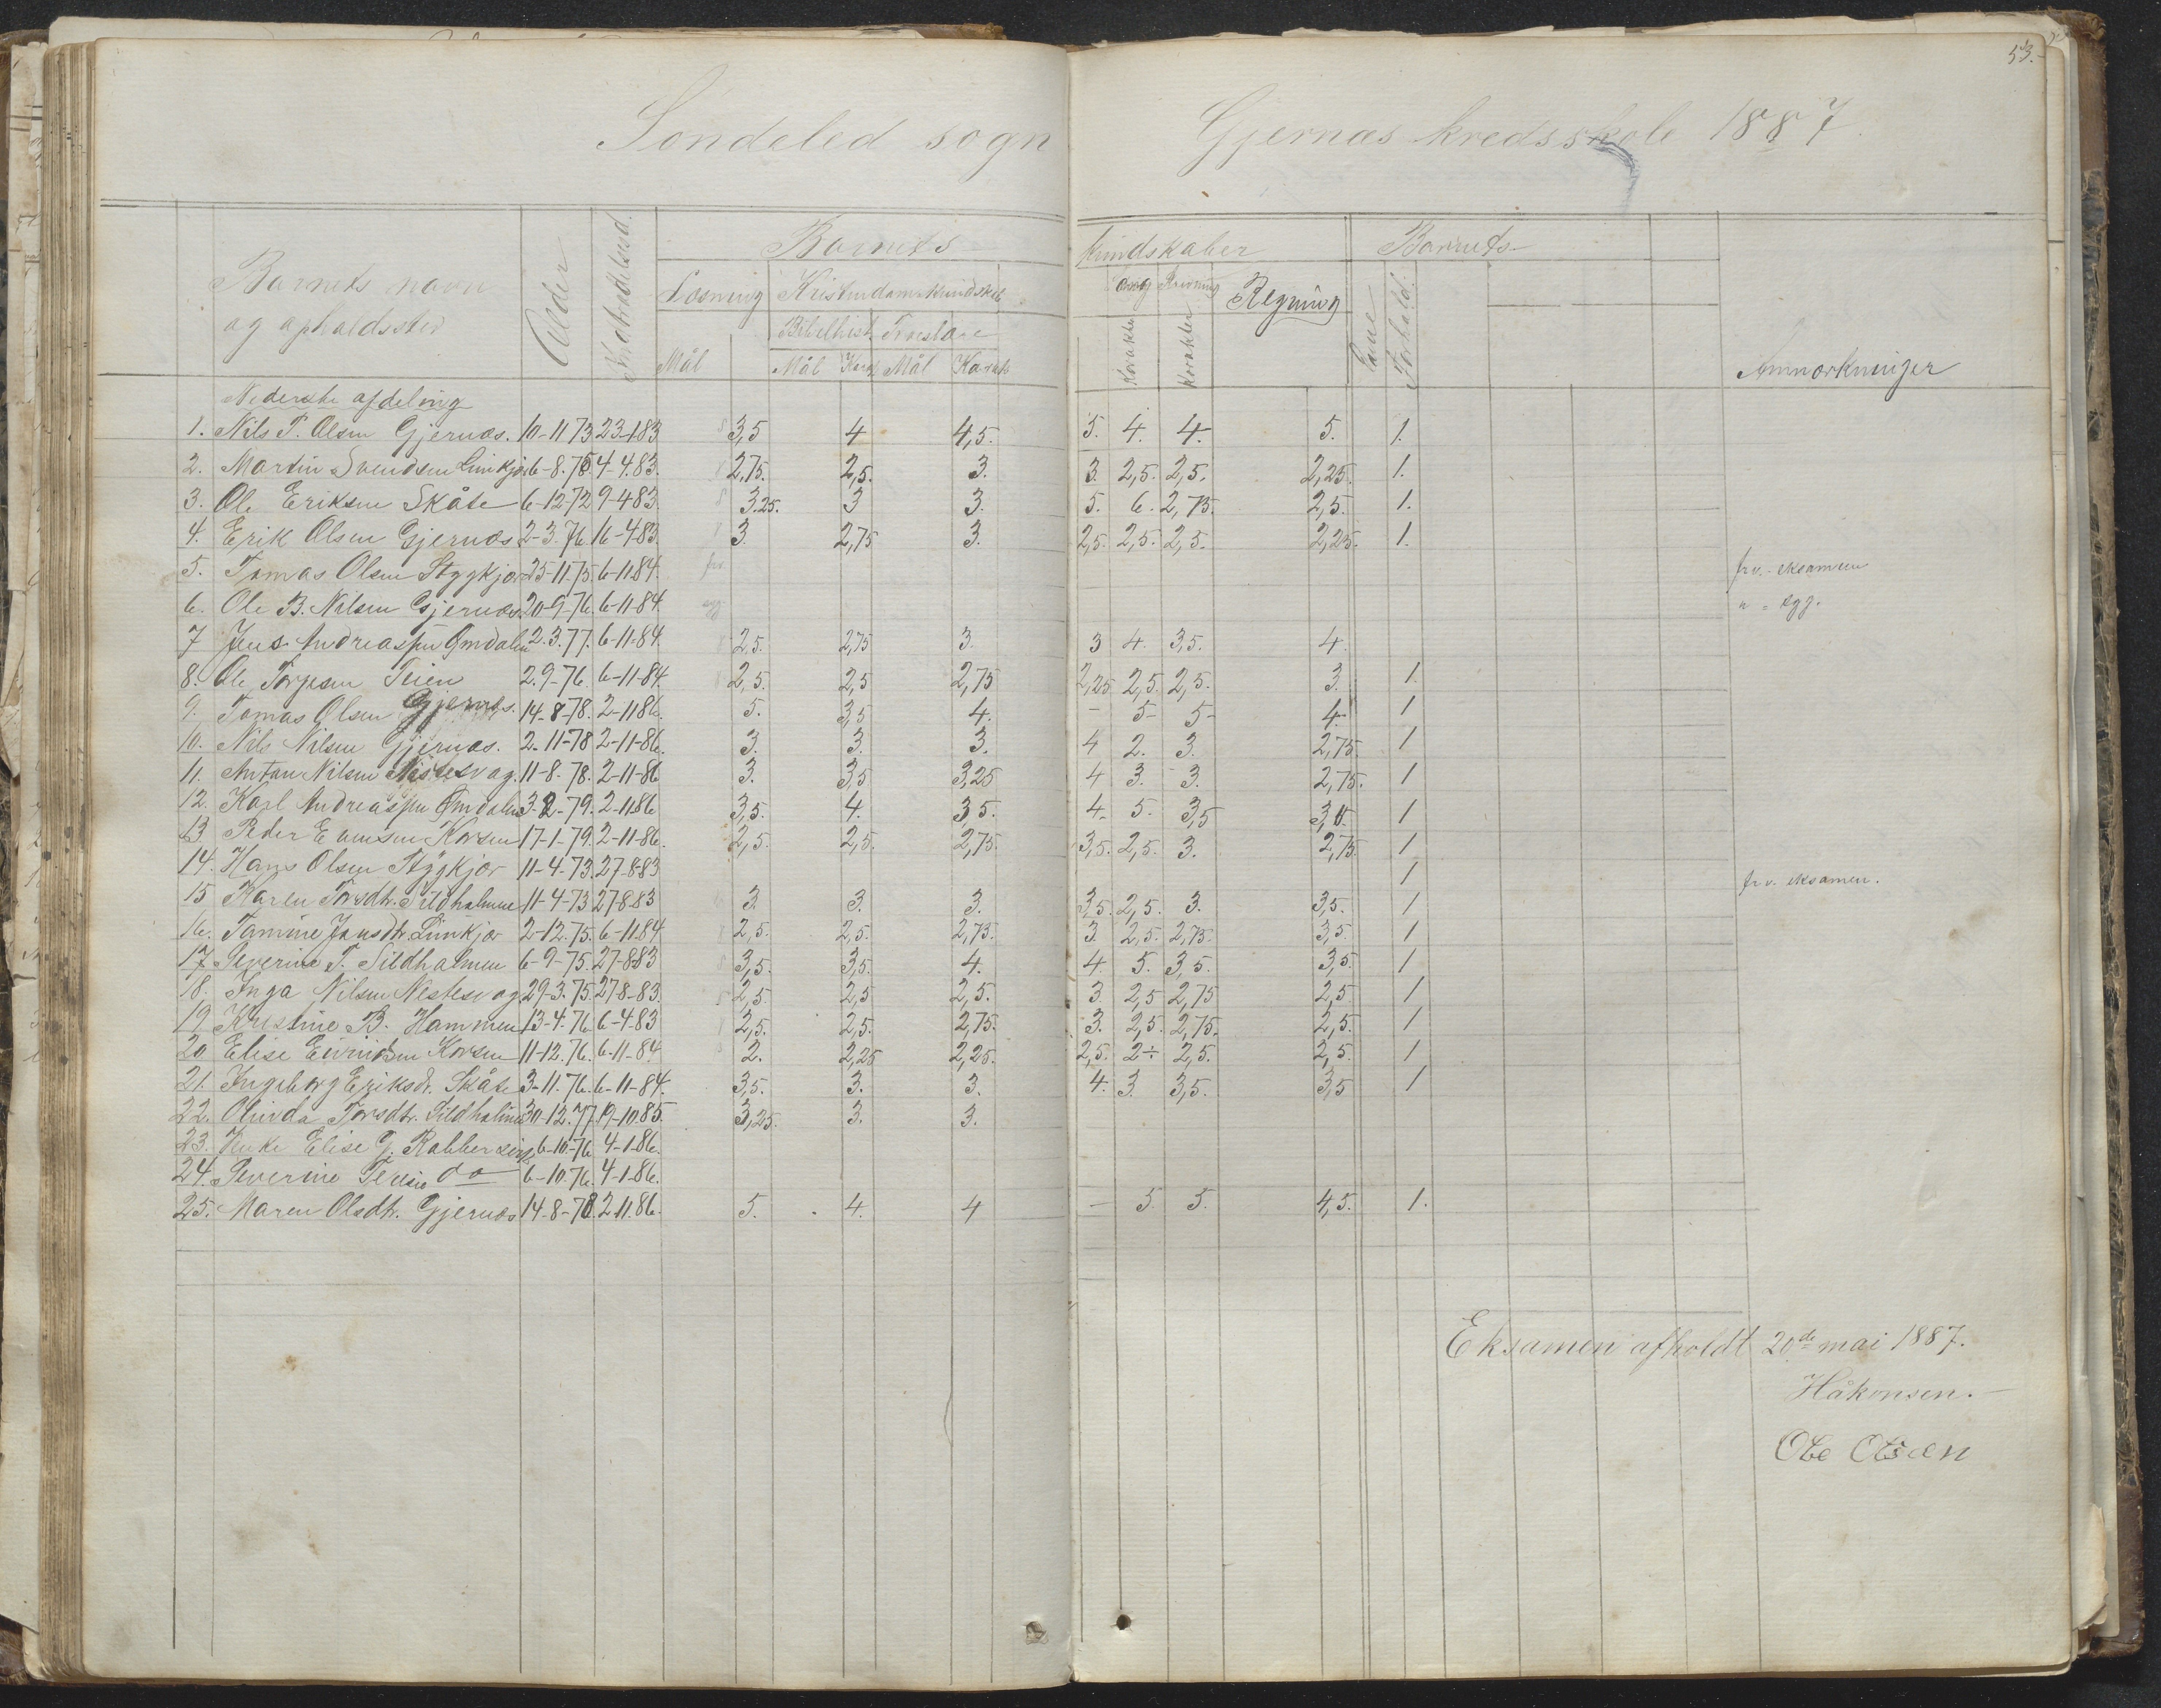 53.
Søndeled sogn Gjernæs kredsskole 1887.
Barnets kundskaber Barnets
Barnets navn og opholdssted Alder Indtrædelsestid Læsning Kristendomskundskab Sang Skrivning Regning Evne Forhold Anmærkninger
Bibelhist. Troeslære
Mål Mål Karak Mål Karakt Karakter Karakter
Nederste afdeling
1. Nils P. Olsen Gjernæs. 10-11 73 23-1.83 3,5 4 4,5. 5. 4. 4. 5. 1.
2. Martin Svendsen Linkjær 6-8.75 4-4.83. 2,75. 2,5. 3. 3. 2,5. 2,5. 2,25. 1.
3. Ole Eriksen Skåte 6-12-72 9-4 83. 3.25. 3 3. 5. 6. 2,75. 2,5. 1.
4. Erik Olsen Gjernæs 2-3.76 16-4-83. 3. 2,75 3. 2,5. 2,5. 2,5. 2,25. 1.
5. Tomas Olsen Stygkjær 25-11.75 6-11.84. frv. frv. - eksamen
6. Ole B. Nilsen Gjernæs. 20-9-76. 6-11-84. syg. " = syg.
7 Jens Andreassen Omdalen 2.3.77. 6-11-84. 2,5. 2,75 3. 3 4. 3,5. 4.
8. Ole Torjesen Teien 2.9-76. 6-11-84. 2,5. 2,5 2,75 2,25 2,5. 2,5. 3. 1.
9. Tomas Olsen Gjernæs. 14-8-78. 2-11 86. 5. 3,5 4. - 5- 5- 4. 1
10. Nils Nilsen Gjernæs. 2-11-78 2-11-86. 3. 3. 3. 4 2. 3. 2,75. 1
11. Anton Nilsen Nestesvag. 11-8.78. 2-11-86 3. 3,5 3,25 4 3. 3. 2,75. 1
12. Karl Andreassen Omdalen 3-2-79. 2-11 86 3,5. 4. 3,5. 4. 5. 3,5 3,5. 1
13 Peder Evensen Korsen 17-1-79. 2-11-86. 2,5. 2,5. 2,75. 3,5. 2,5. 3. 2,75. 1
14. Hans Olsen Stygkjær 11-4-73. 27-8-83 1 frv. eksamen.
15 Karen Torsdtr. Sildholmen 11-4-73 27-8-83 3. 3. 3. 3,5. 2,5. 3. 3,5. 1
16. Tomine Jensdtr. Linkjær 2-12.75. 6-11.84 2,5. 2,5. 2,75. 3. 2,5. 2,75. 3,5. 1
17. Severine T. Sildholmen 6-9-75. 27-8-83 3,5. 3,5. 4. 4. 5. 3,5. 3,5. 1
18. Inga Nilsen Nestesvag 29-3.75. 27-8-83. 2,5. 2,5 2,5. 3. 2,5 2,75 2,5. 1
19. Kristine B. Hammeren 13-4.76. 6-4-83 2,5. 2,5. 2,75. 3. 2,5. 2,75. 2,5. 1
20 Elise Eivindsen Korsen 11-12.76. 6-11-84 2. 2,25 2,25. 2,5. 2÷ 2,5. 2,5. 1
21. Ingeborg Eriksdr. Skåte 3-11.76. 6-11-84. 3,5. 3. 3. 4. 3. 3,5. 3,5 1
22. Olinda Torsdtr. Sildholmen 30-12.77. 19-10.85. 3,25. 3. 3.
23. Elise 6-10-76 4-1-86.
24. Severine do 6-10.76. 4-1-86.
25. Maren Olsdtr. Gjernæs 14-8-78. 2.11.86. 5. 4. 4 - 5. 5. 4,5. 1.
Eksamen afholdt 20de mai 1887.
Håkonsen.
Ole Olsen